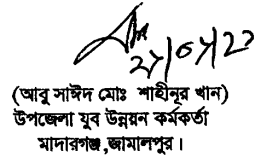 (আবু সাঈদ মোঃ শাহীনূর খান)
উপজেলা যুব উন্নয়ন কর্মকর্তা
মাদারগঞ্জ,জামালপুর।